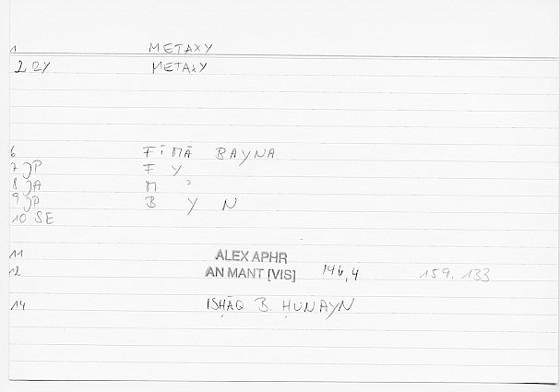 1 METAXY
2 QY METAXY
6 FĪMĀ BAYNA
7 JP F Y
8 JA M ʾ
9 JP B Y N
10 SE
11 ALEX APHR
12 AN MANT [VIS] 146,4 159,133
14 ISḤĀQ B. ḤUNAYN